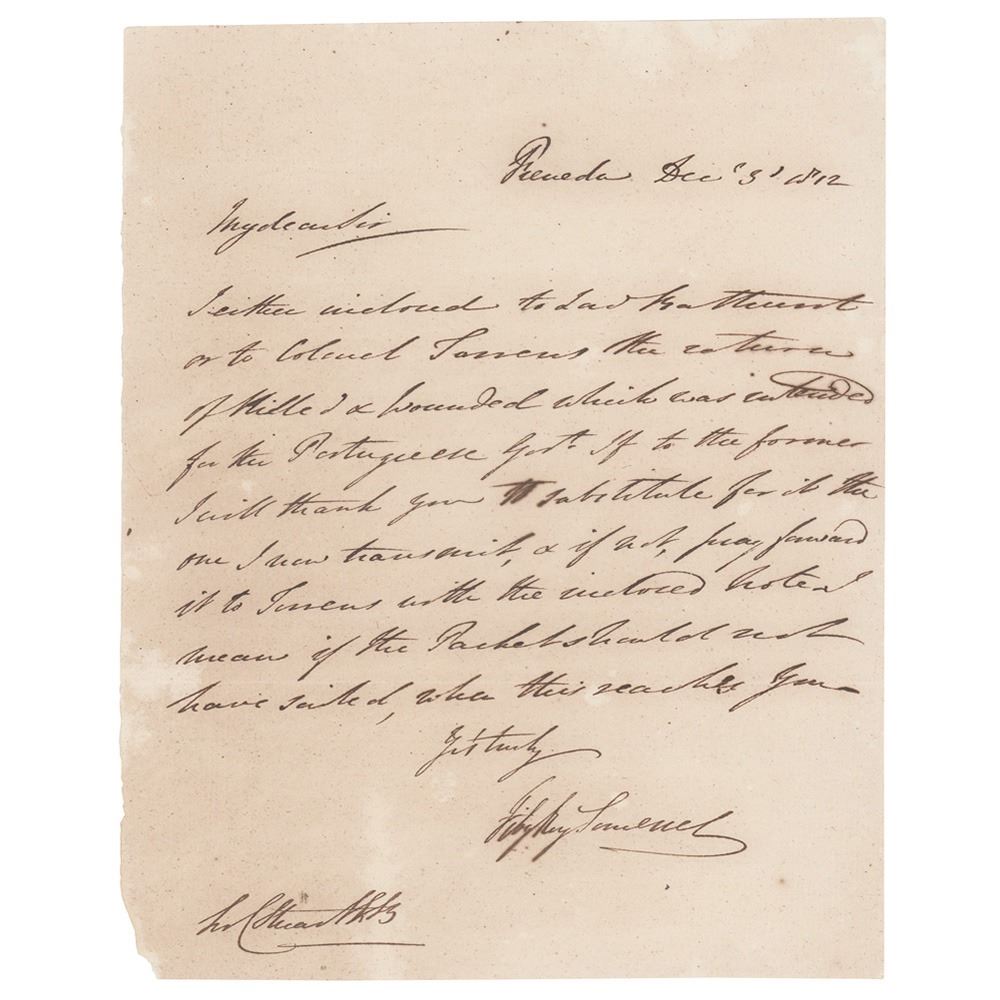 Freneda Decr 3d 1812
My dear Sir
I either inclosed to Lord Bathurst
or to Colonel Torrens the return
of Killed & Wounded which was intended
for the Portuguese Govt. If to the former
I will thank you to substitute for it the
one I now transmit, & if not, pray forward
it to Torrens with the inclosed note I
mean if the Packet should not
have sailed, when this reaches you
Yrs truly
FitzRoy Somerset
Sir C Stuart KB